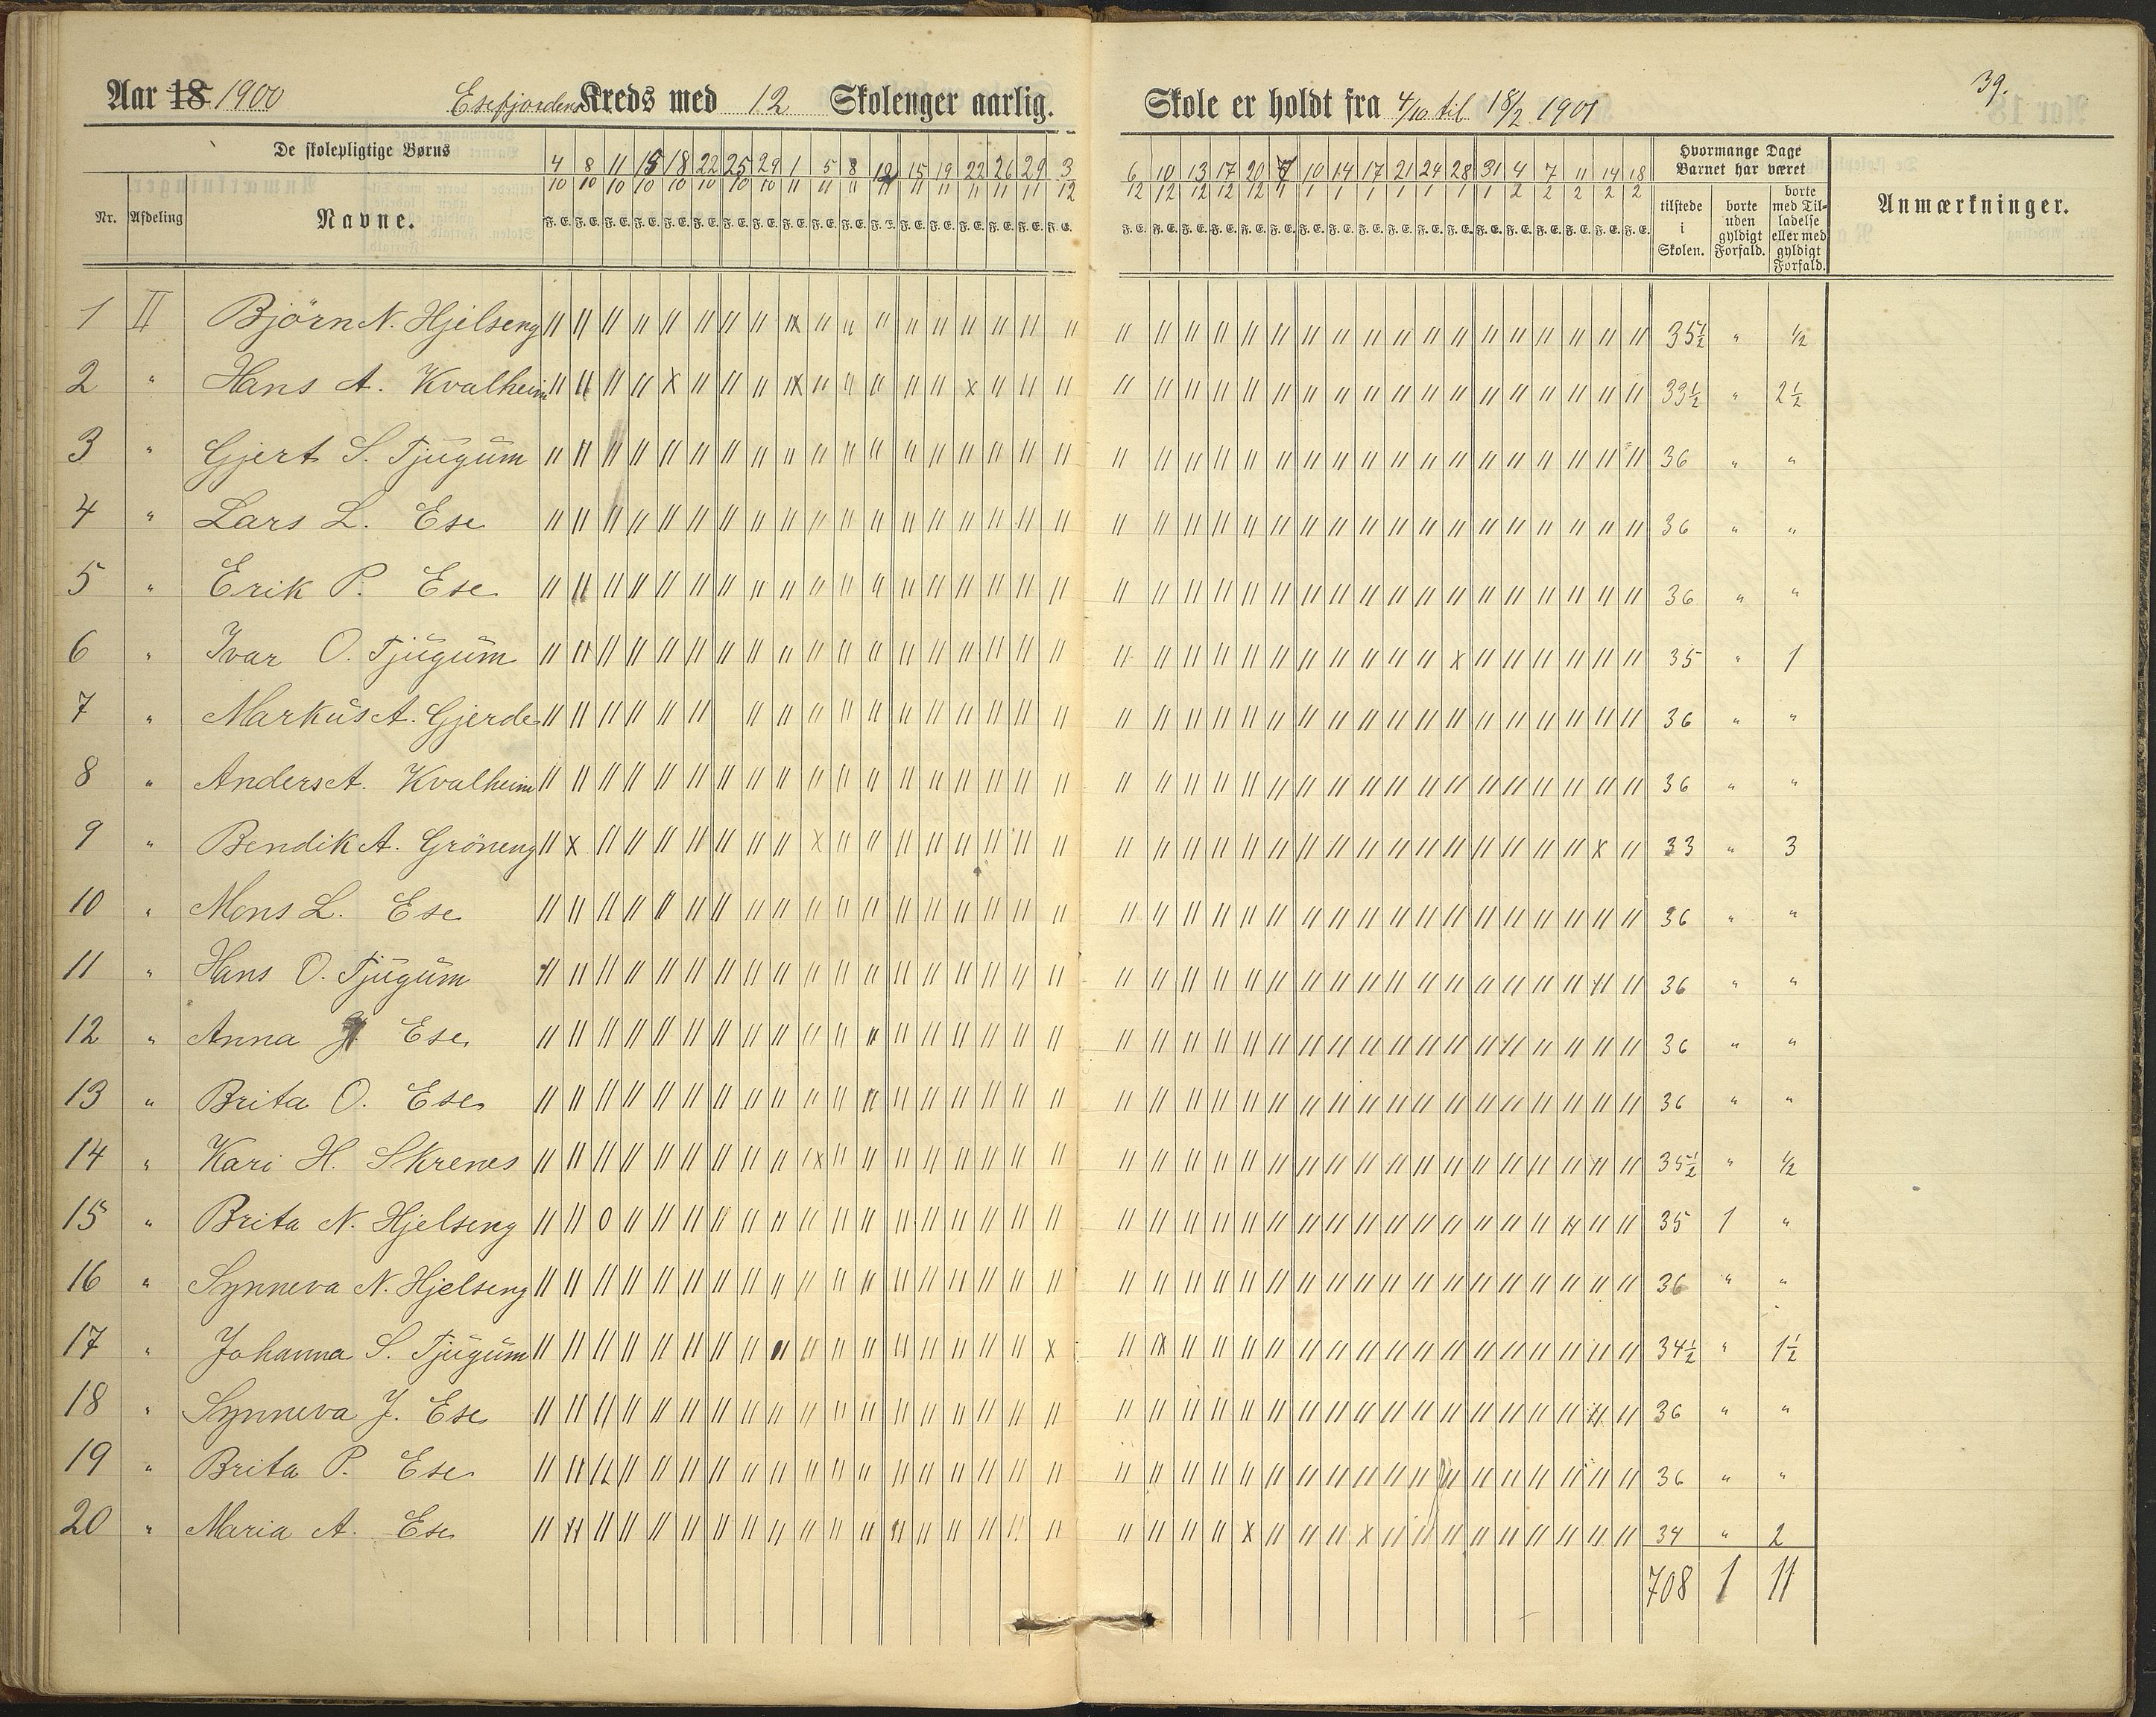 39.
Aar 18 1900 Esefjordens Kreds med 12 Skolenger aarlig. Skole er holdt fra 4/10 til 18/2 1901
De skolepligtige Børns
4/10 8/10 11/10 15/10 18/10 22/10 25/10 29/10 1/11 5/11 8/11 12/11 15/11 19/11 22/11 26/11 29/11 3/12 6/12 10/12 13/12 17/12 20/12 7/1 10/1 14/1 17/1 21/1 24/1 28/1 31/1 4/2 7/2 11/2 14/2 18/2
Hvormange Dage Barnet har været
Nr. Afdeling Navne. F. E. F. E. F. E. F. E. F. E. F. E. F. E. F. E. F. E. F. E. F. E. F. E. F. E. F. E. F. E. F. E. F. E. F. E. F. E. F. E. F. E. F. E. F. E. F. E. F. E. F. E. F. E. F. E. F. E. F. E. F. E. F. E. F. E. F. E. F. E. F. E. tilstede i Skolen. borte uden gyldigt Forfald. borte med Tilladelse eller med gyldigt Forfald. Anmærkninger.
1 II Björn N. Hjelseng 35½ " ½
2 " Hans A. Kvalheim 33½ " 2½
3 " Gjert S. Tjugum 36 " "
4 " Lars L. Ese 36 " "
5 " Erik P. Ese 36 " "
6 " Ivar O. Tjugum 35 " 1
7 " Markus A. Gjerde 36 " "
8 " Anders A. Kvalheim 36 " "
9 " Bendik A. Gröneng 33 " 3
10 " Mons L. Ese 36 " "
11 " Hans O. Tjugum 36 " "
12 " Anna J. Ese 36 " "
13 " Brita O. Ese 36 " "
14 " Kari H. Skrenes 35½ " ½
15 " Brita N. Hjelseng 35 1 "
16 " Synneva N. Hjelseng 36 " "
17 " Johanna S. Tjugum 34½ " 1½
18 " Synneva J. Ese 36 " "
19 " Brita P. Ese 36 " "
20 " Maria A. Ese 34 " 2
708 1 11